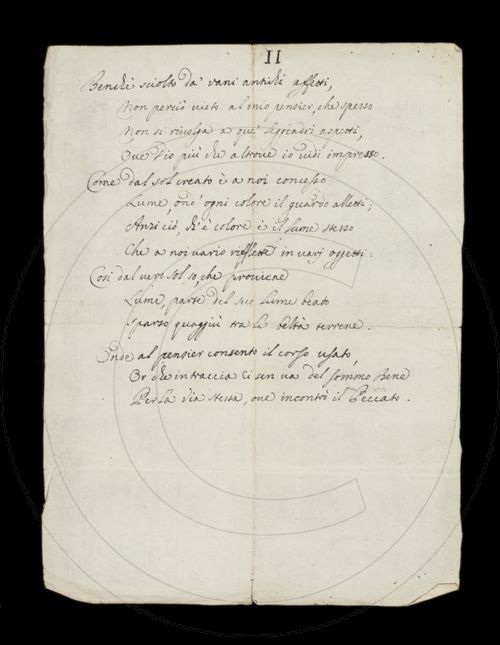 II
Benchè sciolto da' vani antichi affetti,
Non perciò vieto al mio pensier, che spesso
Non si rivolga a que' leggiadri aspetti,
Ove Dio più che altrove io vidi impresso.
Come dal sol creato è a noi concesso
Lume, ond' ogni colore il guardo alletti;
Anzi ciò, ch' è colore è il lume stesso
Che a noi vario riflette in varj oggetti:
Così dal vero Sol so, che proviene
Lume, parte del suo lume beato
Sparso quaggiù tra le beltà terrene.
Onde al pensier consento il corso usato,
Or che in traccia ei sen va del sommo Bene
Per la via stessa, ove incontrò il Peccato.